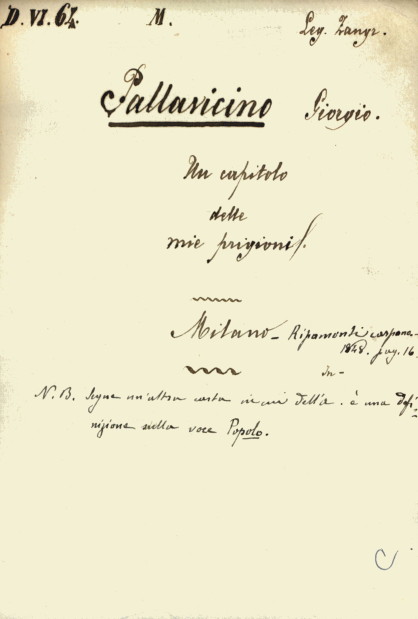 D. VI. 67. M. Leg. Zangr.
Pallavicino Giorgio.
Un capitolo
delle
mie prigioni.
Milano - Ripamonti carpano-
1848. pag. 16
in-
N. B. Segue un'altra carta in cui dell'a. è una defi-
nizione della voce Popolo.